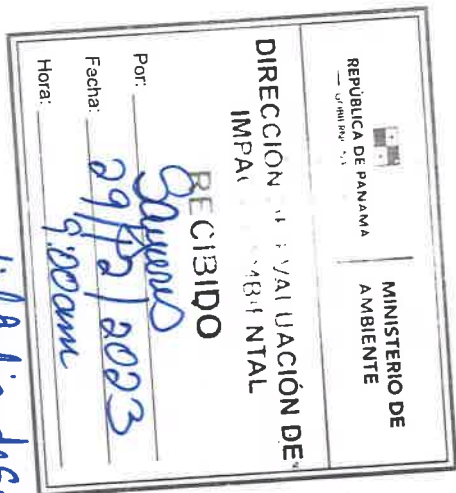 REPÚBLICA DE PANAMÁ
MINISTERIO DE
AMBIENTE
DIRECCIÓN EVALUACIÓN DE
RECIBIDO
Por:
Fecha: 29/12/2023
Hora: 9:00am